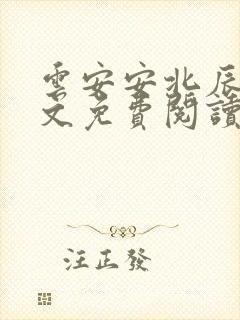 雲安安北辰
文免費閱讀
汪正發